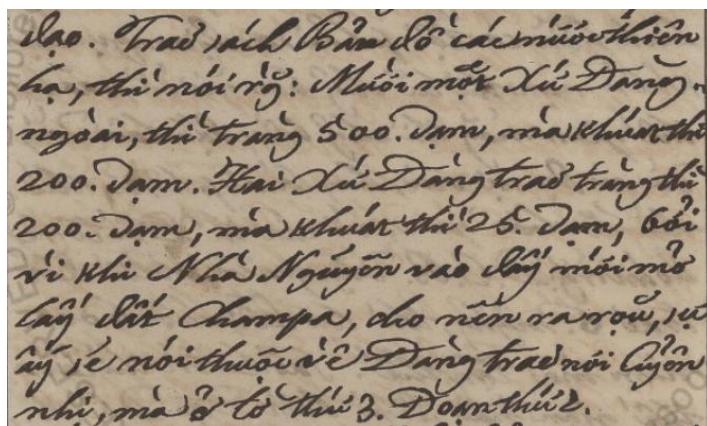 đạo. Traõ sách Bản đồ các nước thiên
hạ, thì nói rằ̃: Mười một Xứ Đàng
ngoài, thì tràng 500. dạm, mà khuát thì
200. dạm. Hai Xứ Đàng traõ tràng thì
200. dạm, mà khuát thì 25. dạm, bởi
vì khi Nhà Nguyễn vào đấy mới mở
lấy đất Champa, cho nên ra rọũ, sự
ấy sẽ nói thuộc về Đàng traõ nơi Cuyển
nhị, mà ở tờ thứ 3. Đoạn thứ 2.